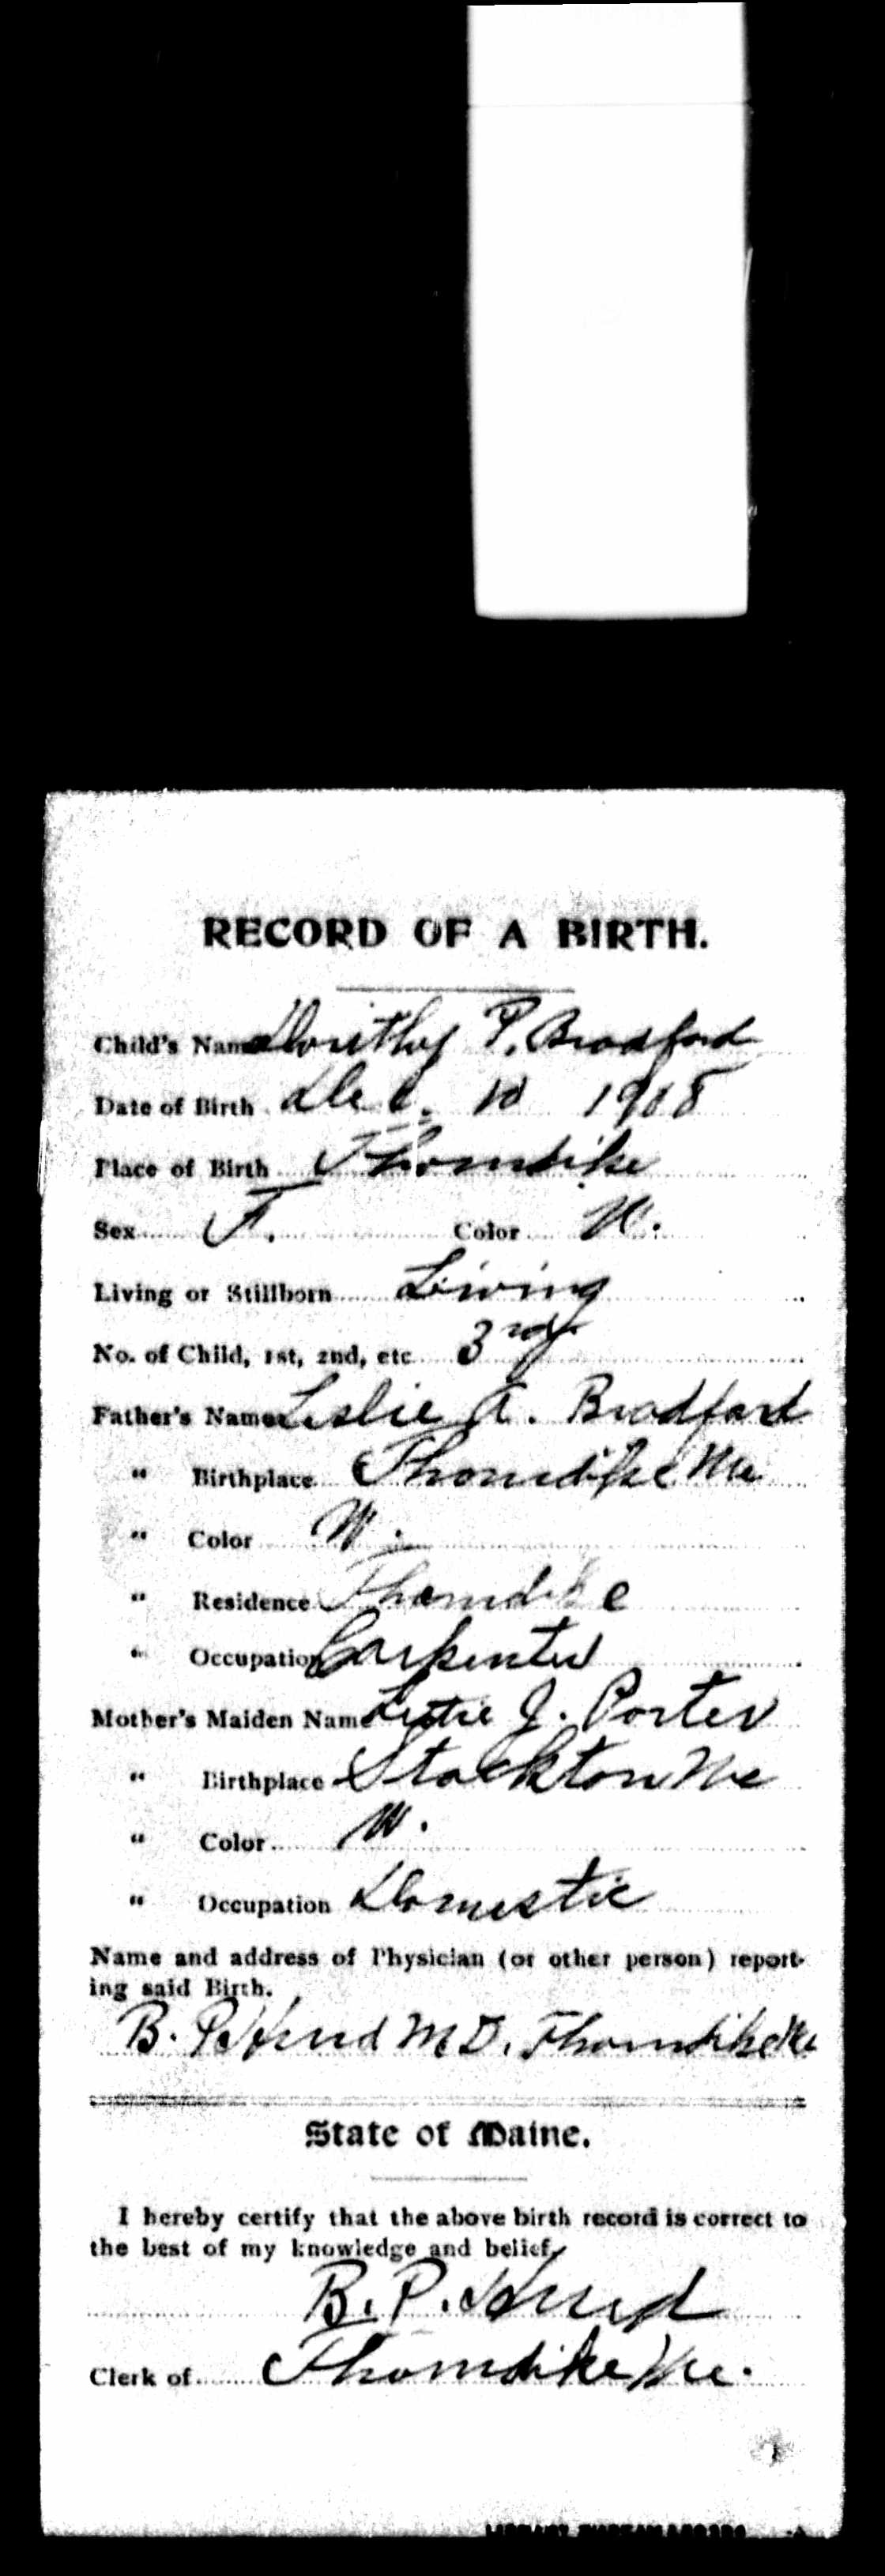 RECORD OF A BIRTH.
Child's Name Dorithy P. Bradford
Date of Birth Dec. 10 1908
Place of Birth Thorndike
Sex F. Color W.
Living or Stillborn Living
No. of Child, 1st, 2nd, etc. 3rd
Father's Name Leslie A. Bradford
" Birthplace Thorndike Me
" Color W.
" Residence Thorndike
" Occupation Carpenter
Mother's Maiden Name J. Porter
" Birthplace Stockton Me
" Color W.
" Occupation Domestic
Name and address of Physician (or other person) report-
ing said Birth.
B. P. Hurd M.D. Thorndike Me
State of Maine.
I hereby certify that the above birth record is correct to
the best of my knowledge and belief,
B. P. Hurd
Clerk of Thorndike Me.